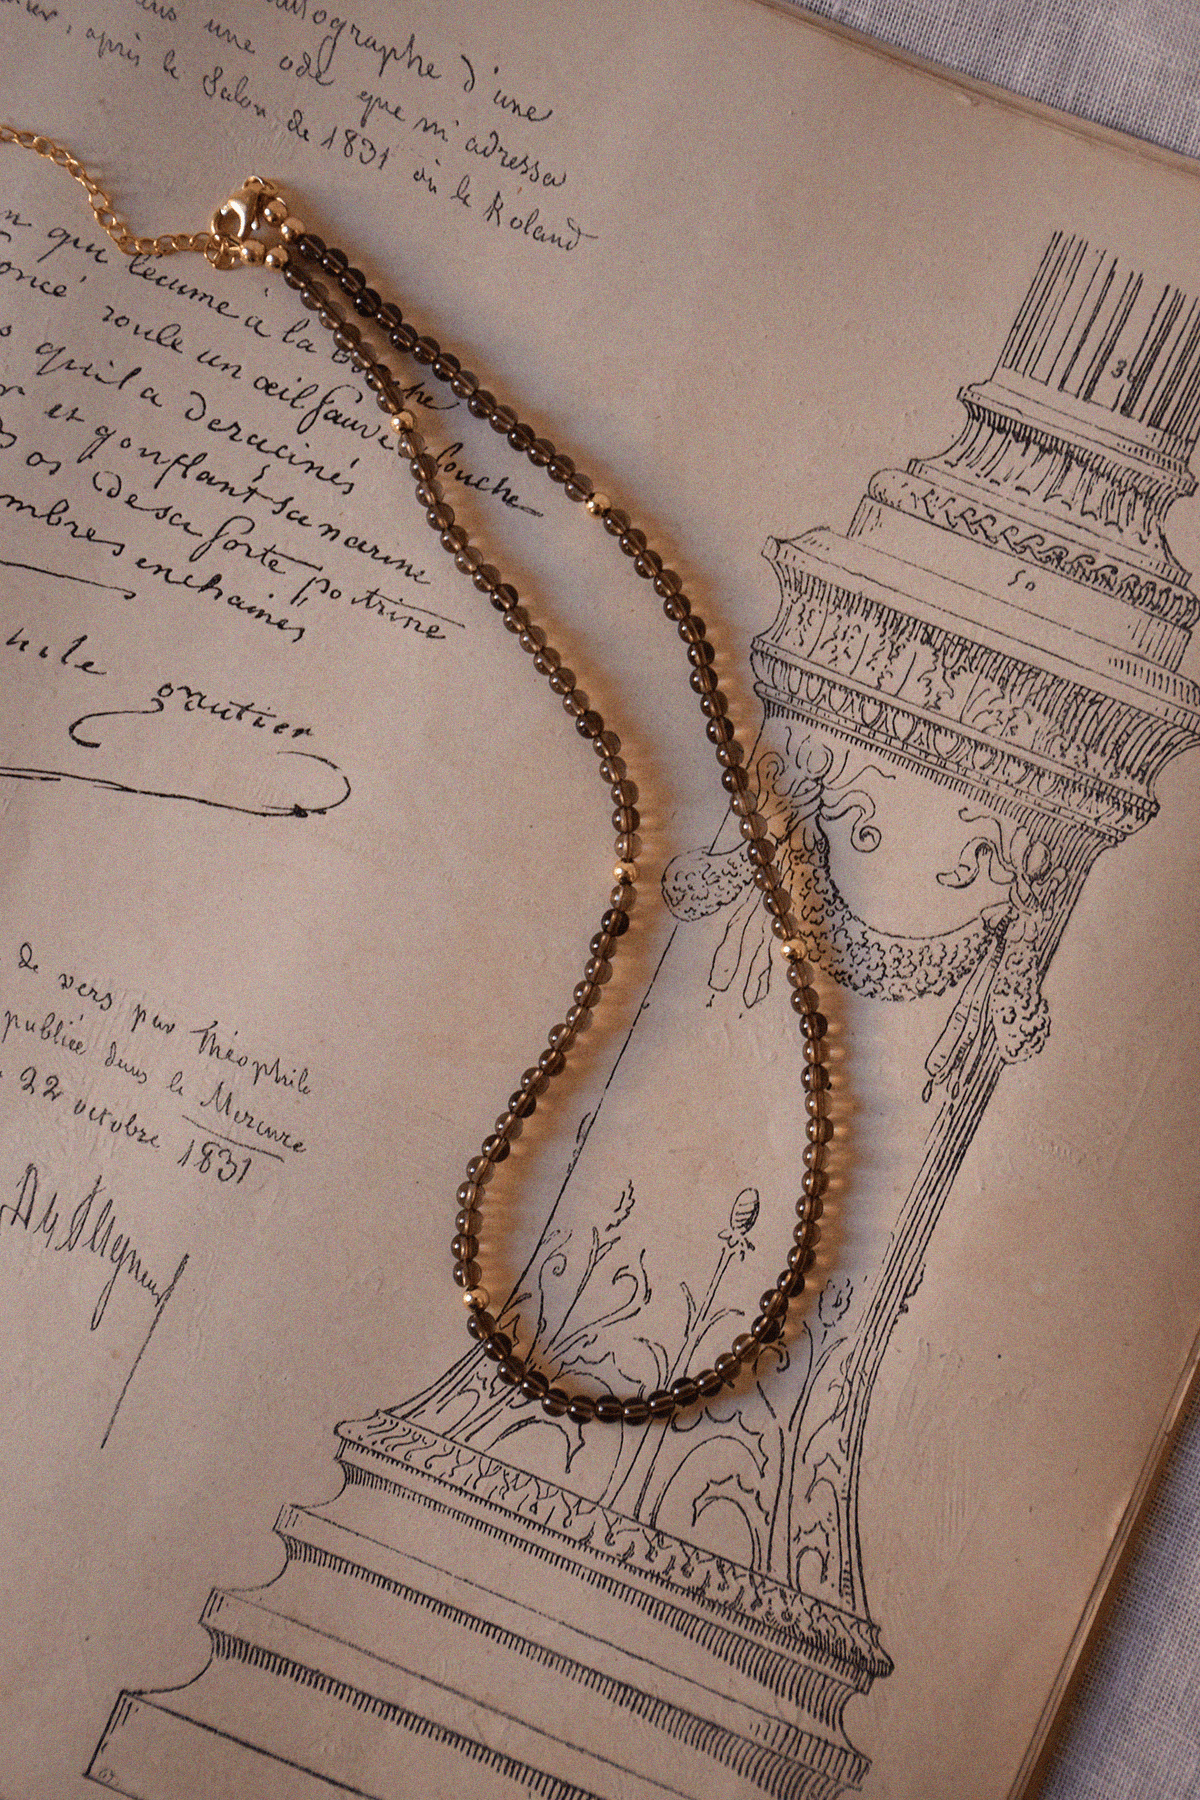 autographe d'une
dans une ode que m'adressa
après le Salon de 1831 où le Roland
qui l'écume à la bouche
roule un œil fauve et louche
qu'il a deracinés
et gonflant sa narine
os de sa forte poitrine
enchaines
gautier
de vers par Théophile
publiée dans le Mercure
22 octobre 1831
3
50